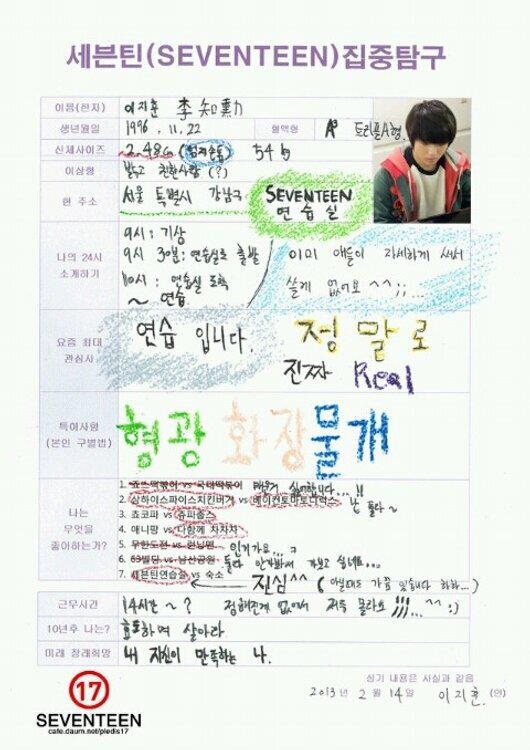 세븐틴(SEVENTEEN)집중탐구
이름(한자) 이지훈 李 知勳
생년월일 1996 . 11. 22 혈액형 A형 트리플A형.
신체사이즈 2.486 54 kg
이상형 밝고 친한사람 (?)
현 주소 서울 특별시 강남구 SEVENTEEN 연습실
나의 24시 소개하기
9시 : 기상
9시 30분 : 연습실로 출발
10시 : 연습실 도착
~ 연습
이미 애들이 자세하게 써서
쓸게 없어요 ^^;;...
요즘 최대 관심사
연습 입니다. 정말로
진짜 Real
특이사항
(본인 구별법)
형광 화장 물개
나는
무엇을
좋아하는가?
1. 죠스떡볶이 vs 국대떡볶이
2. 상하이스파이스치킨버거 vs 베이컨토마토디럭스 난 둘다~
3. 쵸코파 vs 쥬파춥스
4. 애니팡 vs 다함께 차차차
5. 무한도전 vs 런닝맨 인기가요...
6. 63빌딩 vs 남산공원 둘다 안가봐서 가보고 싶네요...
7. 세븐틴연습실 vs 숙소 진심^^
근무시간 14시간 ~ ? 정해진게 없어서 저도 몰라요 ;;;... ^^ :)
10년후 나는? 효도하며 살아라
미래 장래희망 내 자신이 만족하는 나.
상기 내용은 사실과 같음
2013년 2월 14일 이지훈 (인)
17
SEVENTEEN
cafe.daum.net/pledis17